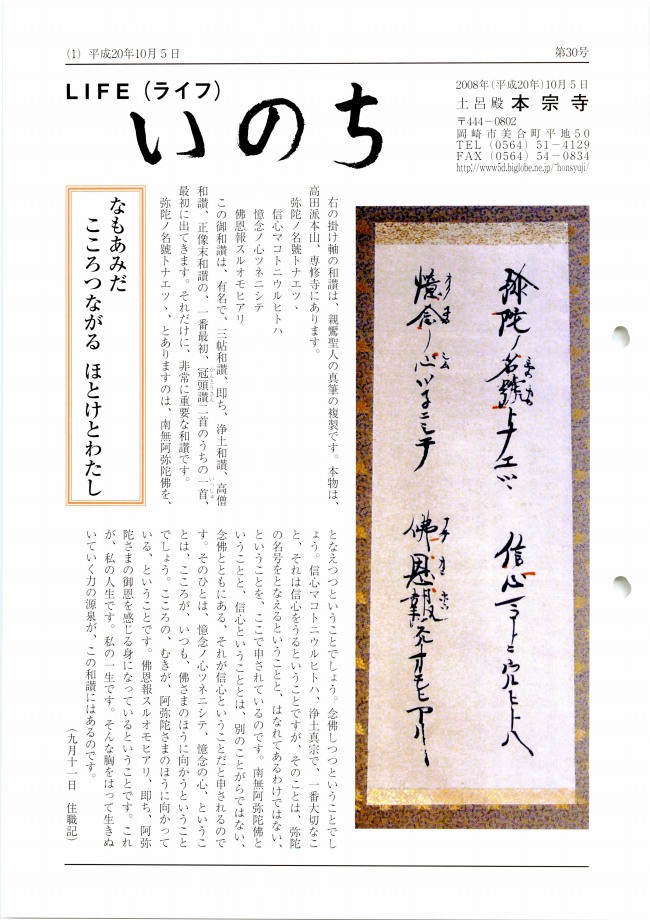 (1) 平成20年10月5日
第30号
LIFE (ライフ)
いのち
2008年(平成20年)10月5日
土呂殿 本宗寺
〒444-0802
岡崎市美合町平地50
TEL (0564) 51-4129
FAX (0564) 54-0834
http://www5d.biglobe.ne.jp/~honsyuji/
弥陀ノ名號トナエツヽ
信心マコトニウルヒトハ
憶念ノ心ツネニシテ
佛恩報スルオモヒアリ
右の掛け軸の和讃は、親鸞聖人の真筆の複製です。本物は、
高田派本山、専修寺にあります。
弥陀ノ名號トナエツヽ
信心マコトニウルヒトハ
憶念ノ心ツネニシテ
佛恩報スルオモヒアリ
この御和讃は、有名で、三帖和讃、即ち、浄土和讃、高僧
和讃、正像末和讃の、一番最初、冠頭讃二首のうちの一首、
最初に出てきます。それだけに、非常に重要な和讃です。
弥陀ノ名號トナエツヽ、とありますのは、南無阿弥陀佛を、
なもあみだ
こころつながる ほとけとわたし
となえつつということでしょう。念佛しつつということでし
ょう。信心マコトニウルヒトハ、浄土真宗で、一番大切なこ
と、それは信心をうるということですが、そのことは、弥陀
の名号をとなえるということと、はなれてあるわけではない、
ということを、ここで申されているのです。南無阿弥陀佛と
いうことと、信心ということとは、別のことがらではない、
念佛とともにある、それが信心ということだと申されるので
す。そのひとは、憶念ノ心ツネニシテ、憶念の心、というこ
とは、こころが、いつも、佛さまのほうに向かうということ
でしょう。こころの、むきが、阿弥陀さまのほうに向かって
いる、ということです。佛恩報スルオモヒアリ、即ち、阿弥
陀さまの御恩を感じる身になっているということです。これ
が、私の人生です。私の一生です。そんな胸をはって生きぬ
いていく力の源泉が、この和讃にはあるのです。
(九月十一日 住職記)